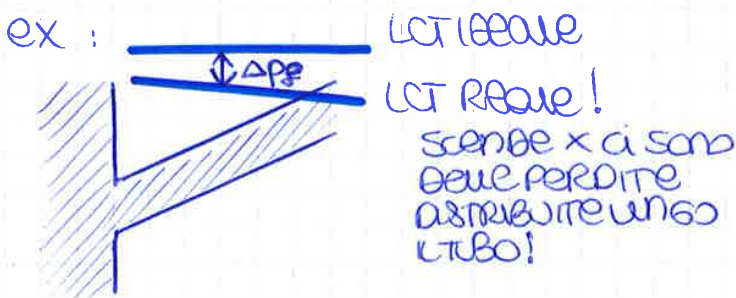 ex :
LCT IDEALE
Δpe
LCT REALE!
SCENDE x CI SONO
DELLE PERDITE
DISTRIBUITE LUNGO
IL TUBO!